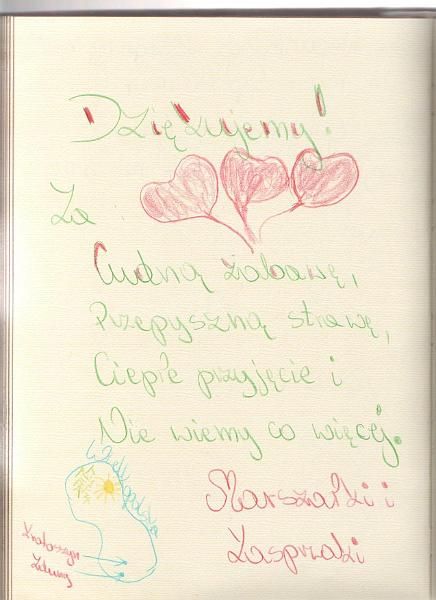 Dziękujemy!
Za
Cudną zabawę,
Przepyszną strawę,
Ciepłe przyjęcie i
Nie wiemy co więcej.
Wielkopolska
Marszałki i
Kasprzaki
Krotoszyn
Zduny